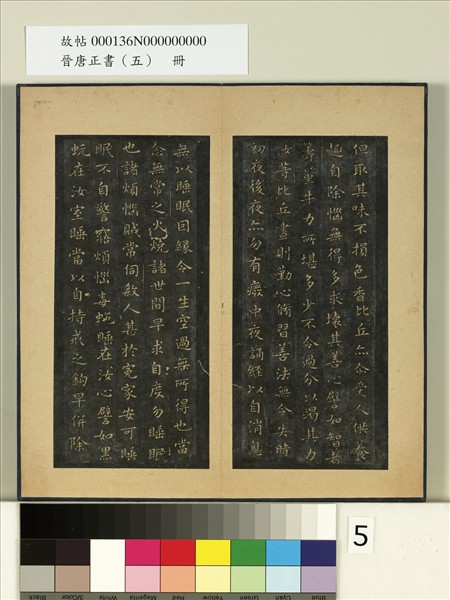 故帖 000136N000000000
晉唐正書（五） 冊
但取其味不損色香比丘亦尒受人供養
趣自除惱無得多求壞其善心譬如智者
籌量牛力所堪多少不令過分以竭其力
汝等比丘晝則勤心脩習善法無令失時
初夜後夜亦勿有廢中夜誦經以自消息
無以睡眠因緣令一生空過無所得也當
念無常之火燒諸世間早求自度勿睡眠
也諸煩惱賊常伺殺人甚於冤家安可睡
眠不自警寤煩惱毒虵睡在汝心譬如黑
蚖在汝室睡當以自持戒之鉤早併除
5
Black
3/Color
White
Magenta
Red
Yellow
Green
Cyan
Blue